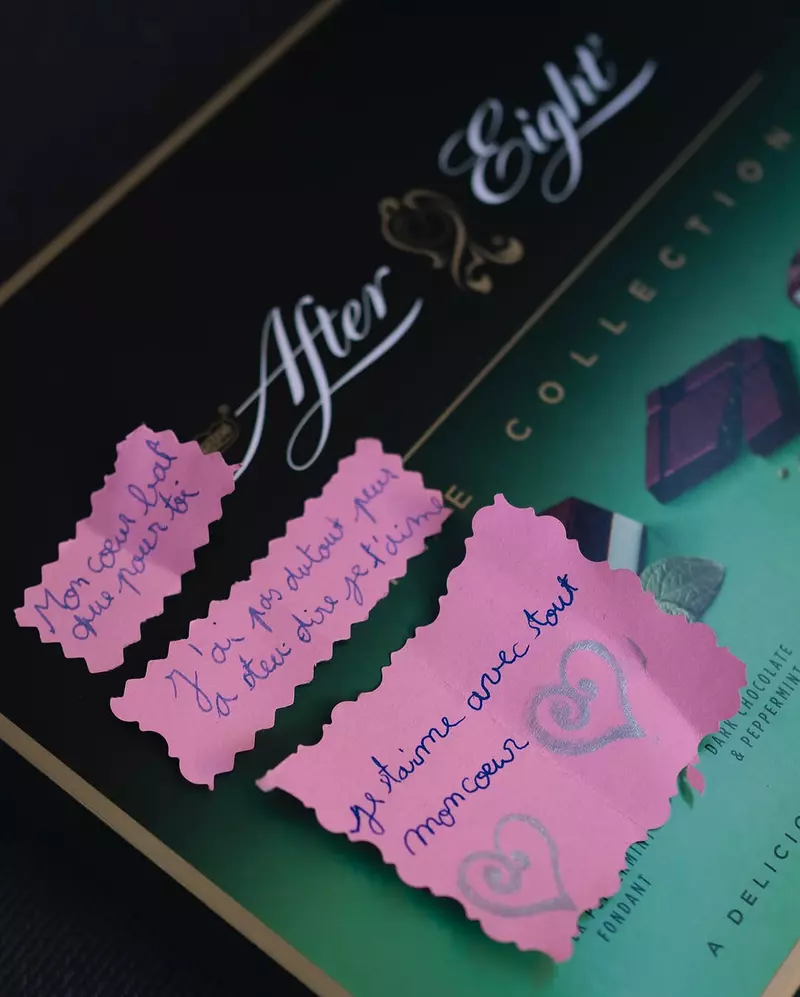 After Eight
COLLECTION
Mon coeur bat
que pour toi
J'ai pas dutout peur
a oteu dire je t'dime
je t'aime avec tout
mon coeur
DARK CHOCOLATE
& PEPPERMINT
FONDANT
A DELICIO